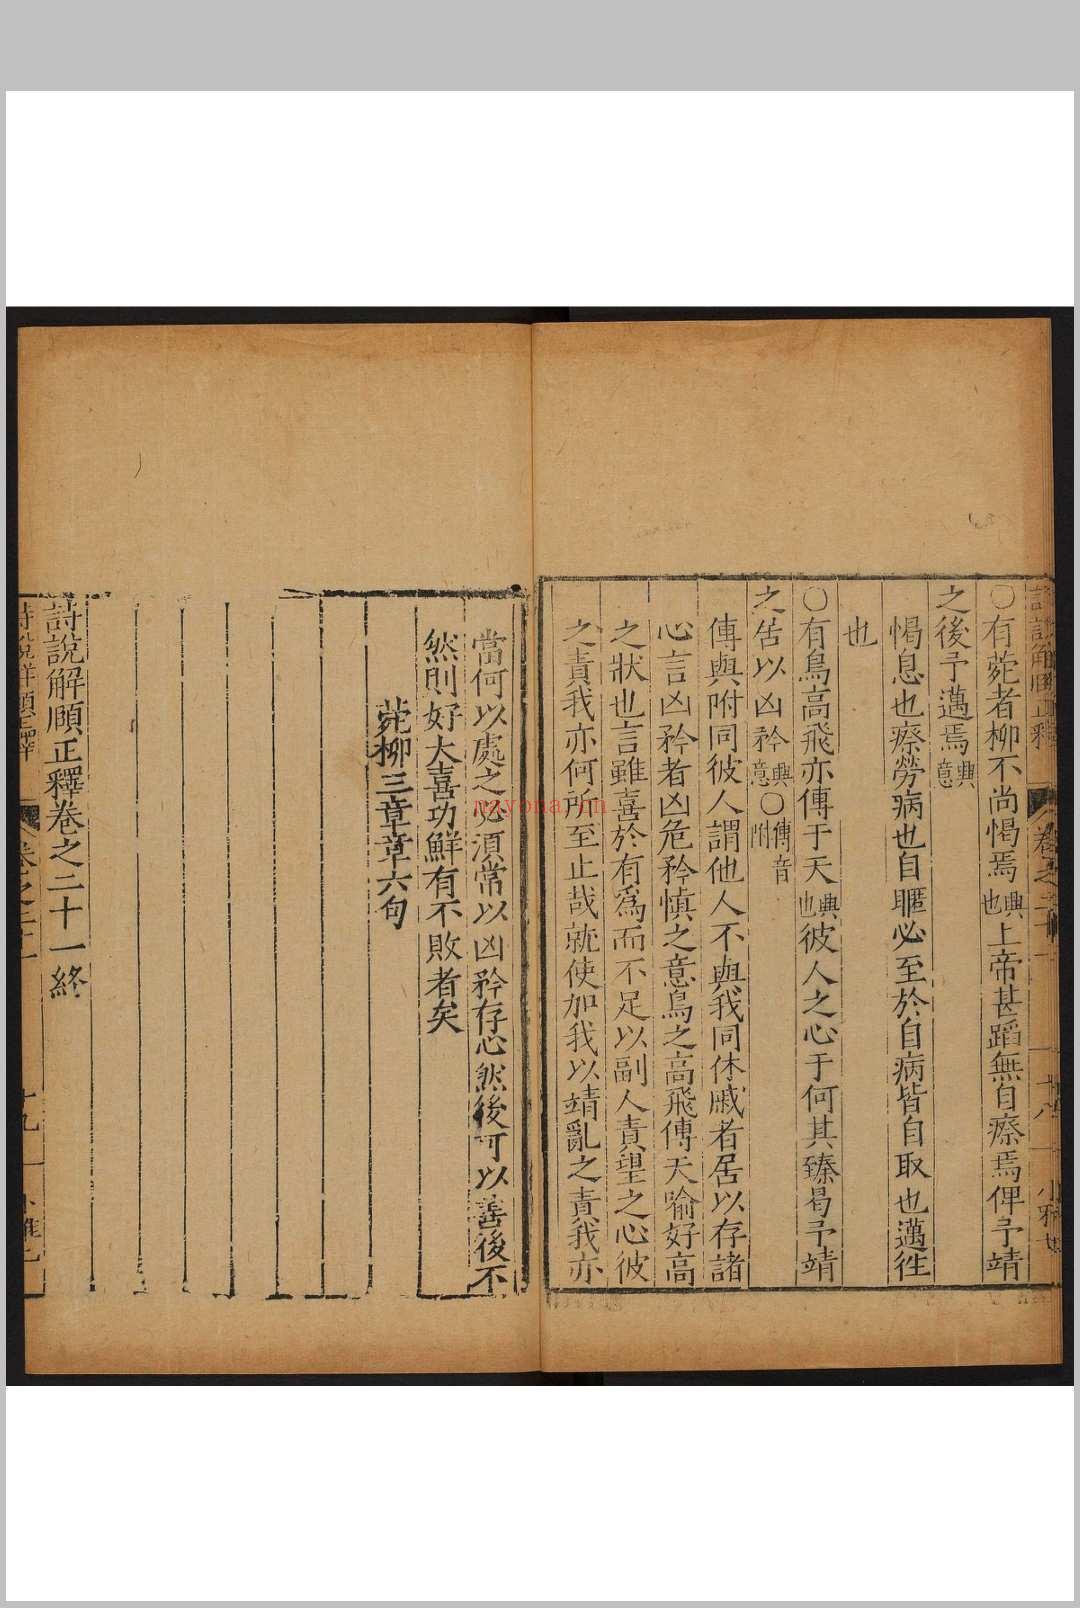 ○有菀者柳不尚愒焉興也上帝甚蹈無自瘵焉俾予靖
之後予邁焉興意
愒息也瘵勞病也自暱必至於自病皆自取也邁徃
也
○有鳥高飛亦傳于天興也彼人之心于何其臻曷予靖
之居以凶矜興意○傳音附
傳與附同彼人謂他人不與我同休戚者居以存諸
心言凶矜者凶危矜慎之意鳥之高飛傳天喻好高
之狀也言雖喜於有爲而不足以副人責望之心彼
之責我亦何所至止哉就使加我以靖亂之責我亦
當何以處之必須常以凶矜存心然後可以善後不
然則好大喜功鮮有不敗者矣
菀柳三章章六句
詩說解頤正釋卷之二十一終
nayona.cn